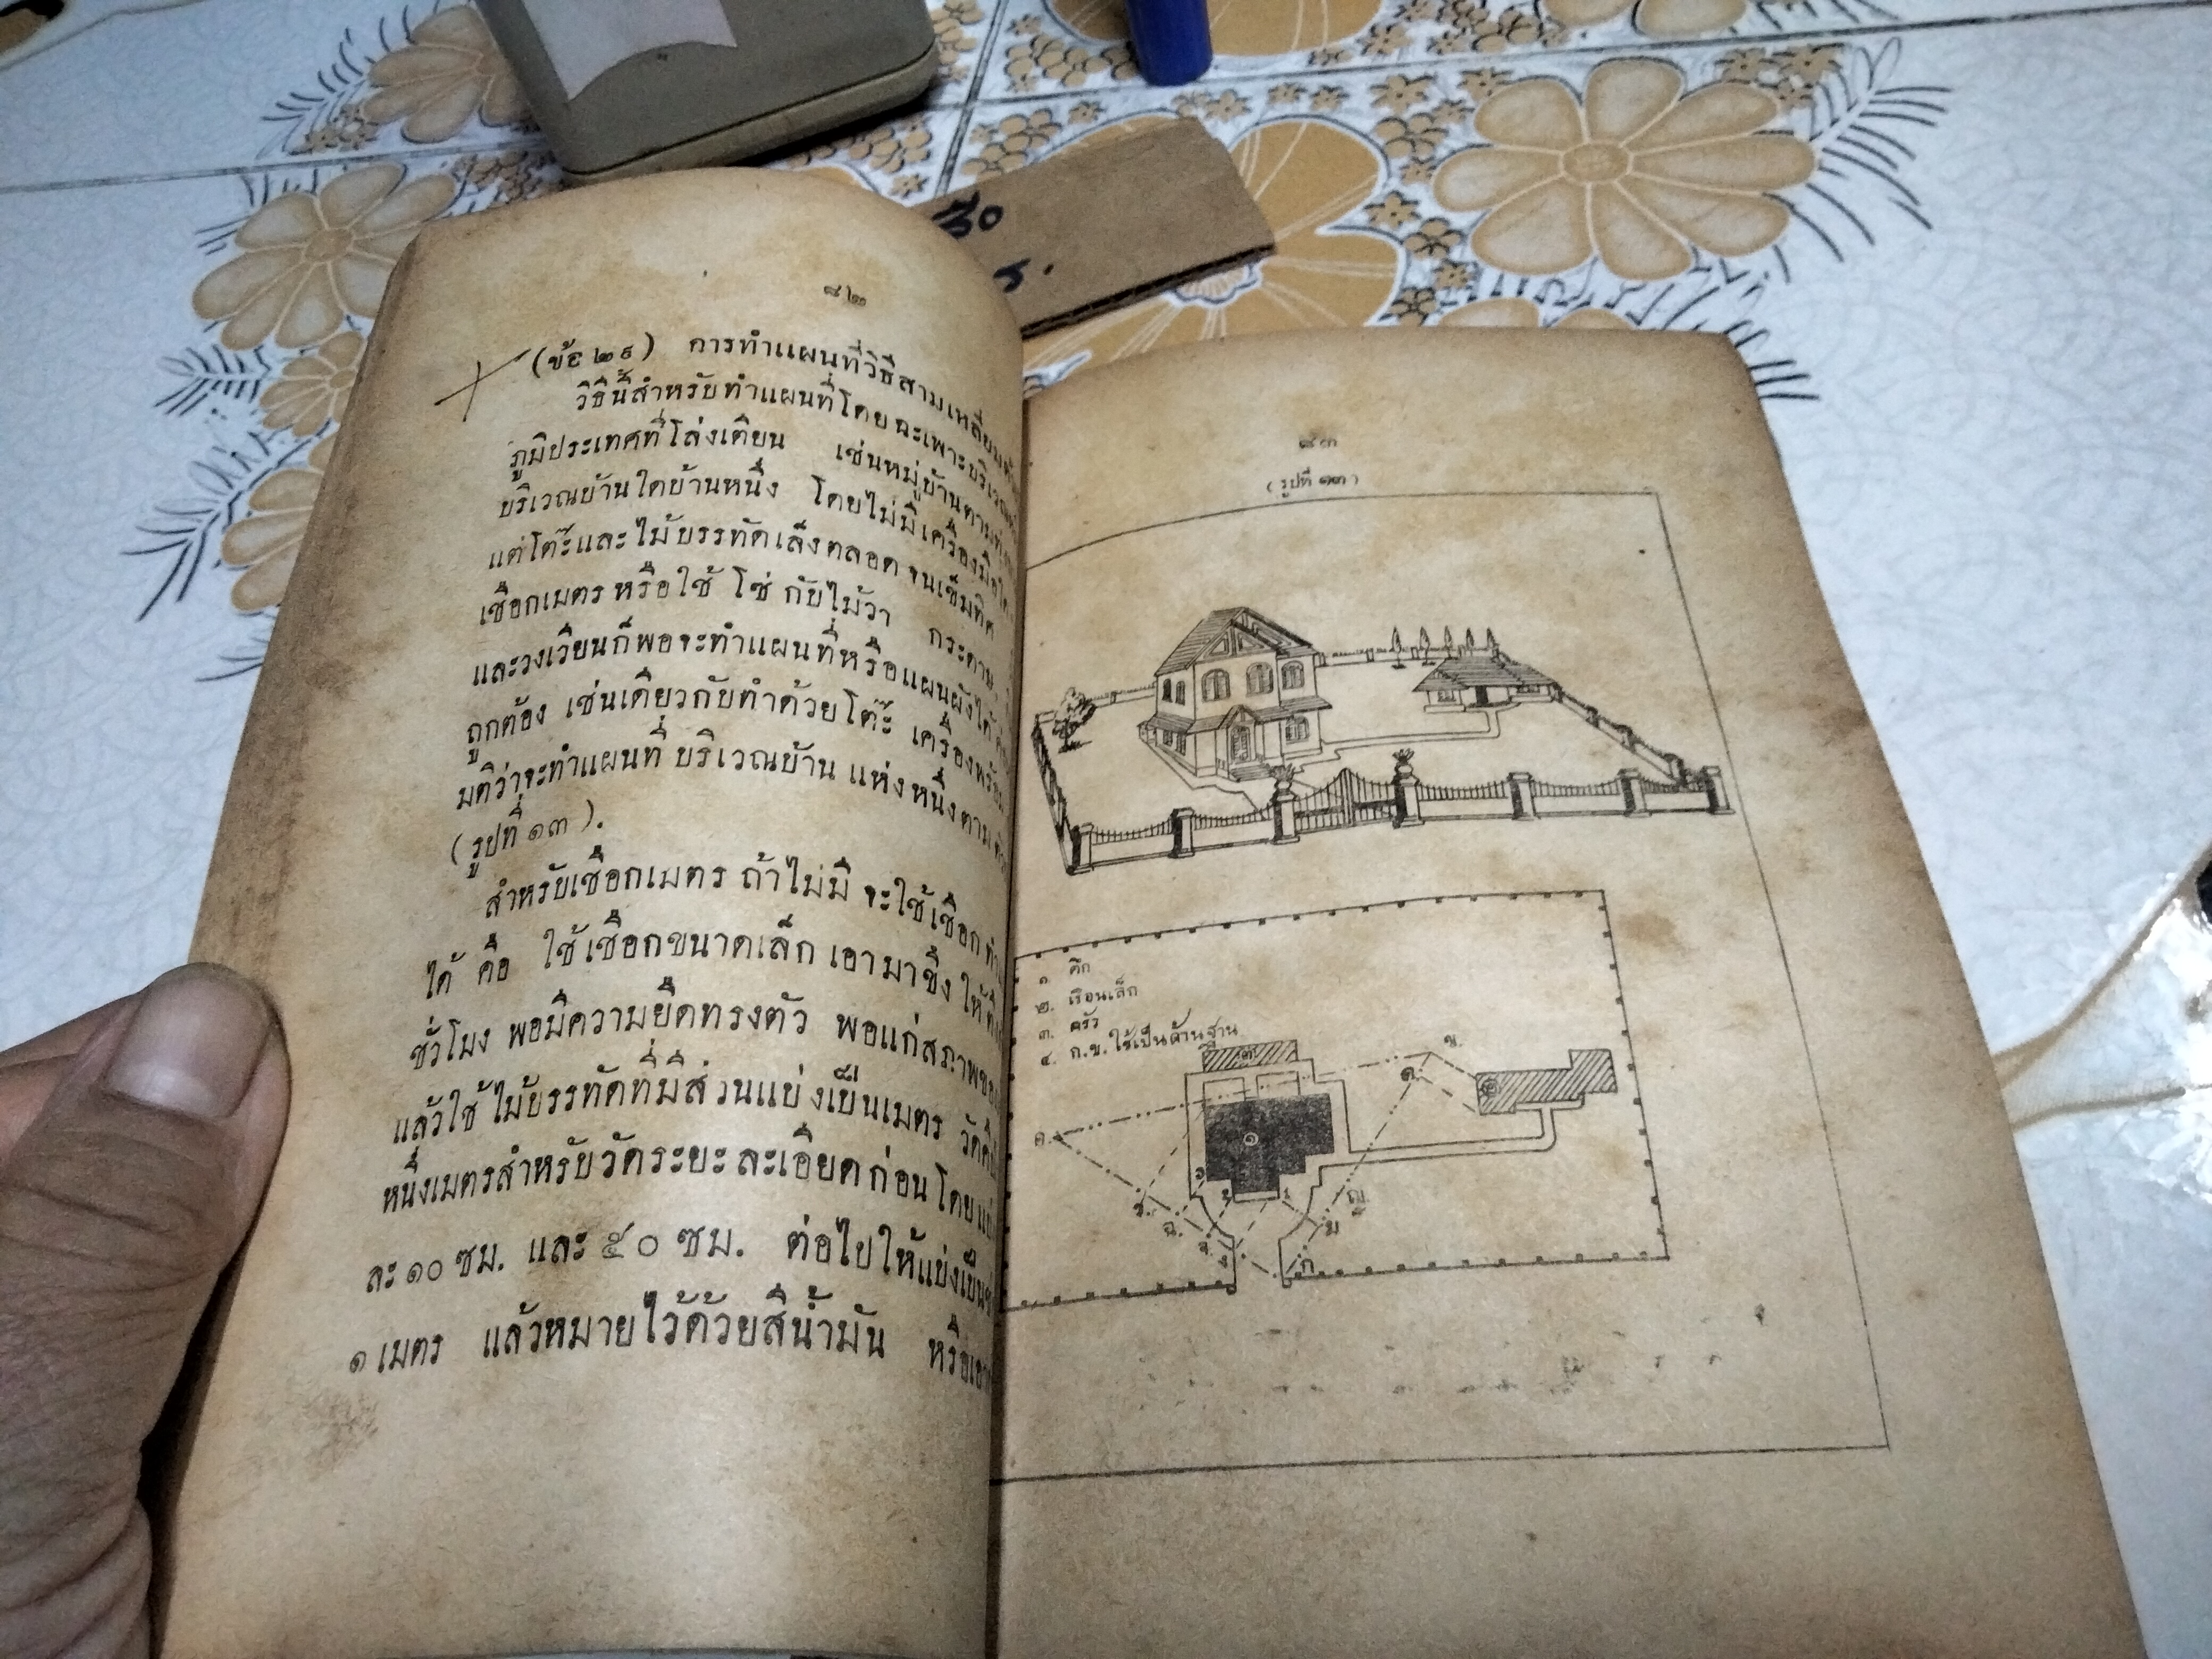 ๘๒
(ข้อ ๒๙) การทำแผนที่วิธีสามเหลี่ยม
วิธีนี้สำหรับทำแผนที่โดยฉะเพาะบริเวณ
ภูมิประเทศที่โล่งเตียน เช่นหมู่บ้านตาม
บริเวณบ้านใดบ้านหนึ่ง โดยไม่มีเครื่องมือ
แต่โต๊ะและไม้บรรทัดเล็งตลอดจนเข็มทิศ
เชือกเมตรหรือใช้ โซ่ กับไม้วา กระดาน
และวงเวียนก็พอจะทำแผนที่หรือแผนผังได้
ถูกต้อง เช่นเดียวกับทำด้วยโต๊ะ เครื่องพร้อม
มติว่าจะทำแผนที่ บริเวณบ้าน แห่งหนึ่งตาม
(รูปที่ ๑๓).
สำหรับเชือกเมตร ถ้าไม่มี จะใช้เชือก
ได้ คือ ใช้เชือกขนาดเล็ก เอามาขึง ให้
ชั่วโมง พอมีความยืดทรงตัว พอแก่สภาพ
แล้วใช้ ไม้บรรทัดที่มีส่วนแบ่งเป็นเมตร วัด
หนึ่งเมตรสำหรับวัดระยะละเอียดก่อน โดย
ละ ๑๐ ซม. และ ๕๐ ซม. ต่อไปให้แบ่งเป็น
๑ เมตร แล้วหมายไว้ด้วยสีน้ำมัน หรือ
๘๓
(รูปที่ ๑๓)
๑ ตึก
๒. เรือนเล็ก
๓. ครัว
๔. ก.ข. ใช้เป็นด้านฐาน
๓
ข.
ด.
๒
ค.
๑
ญ.
ฉ.
จ.
ง
ก